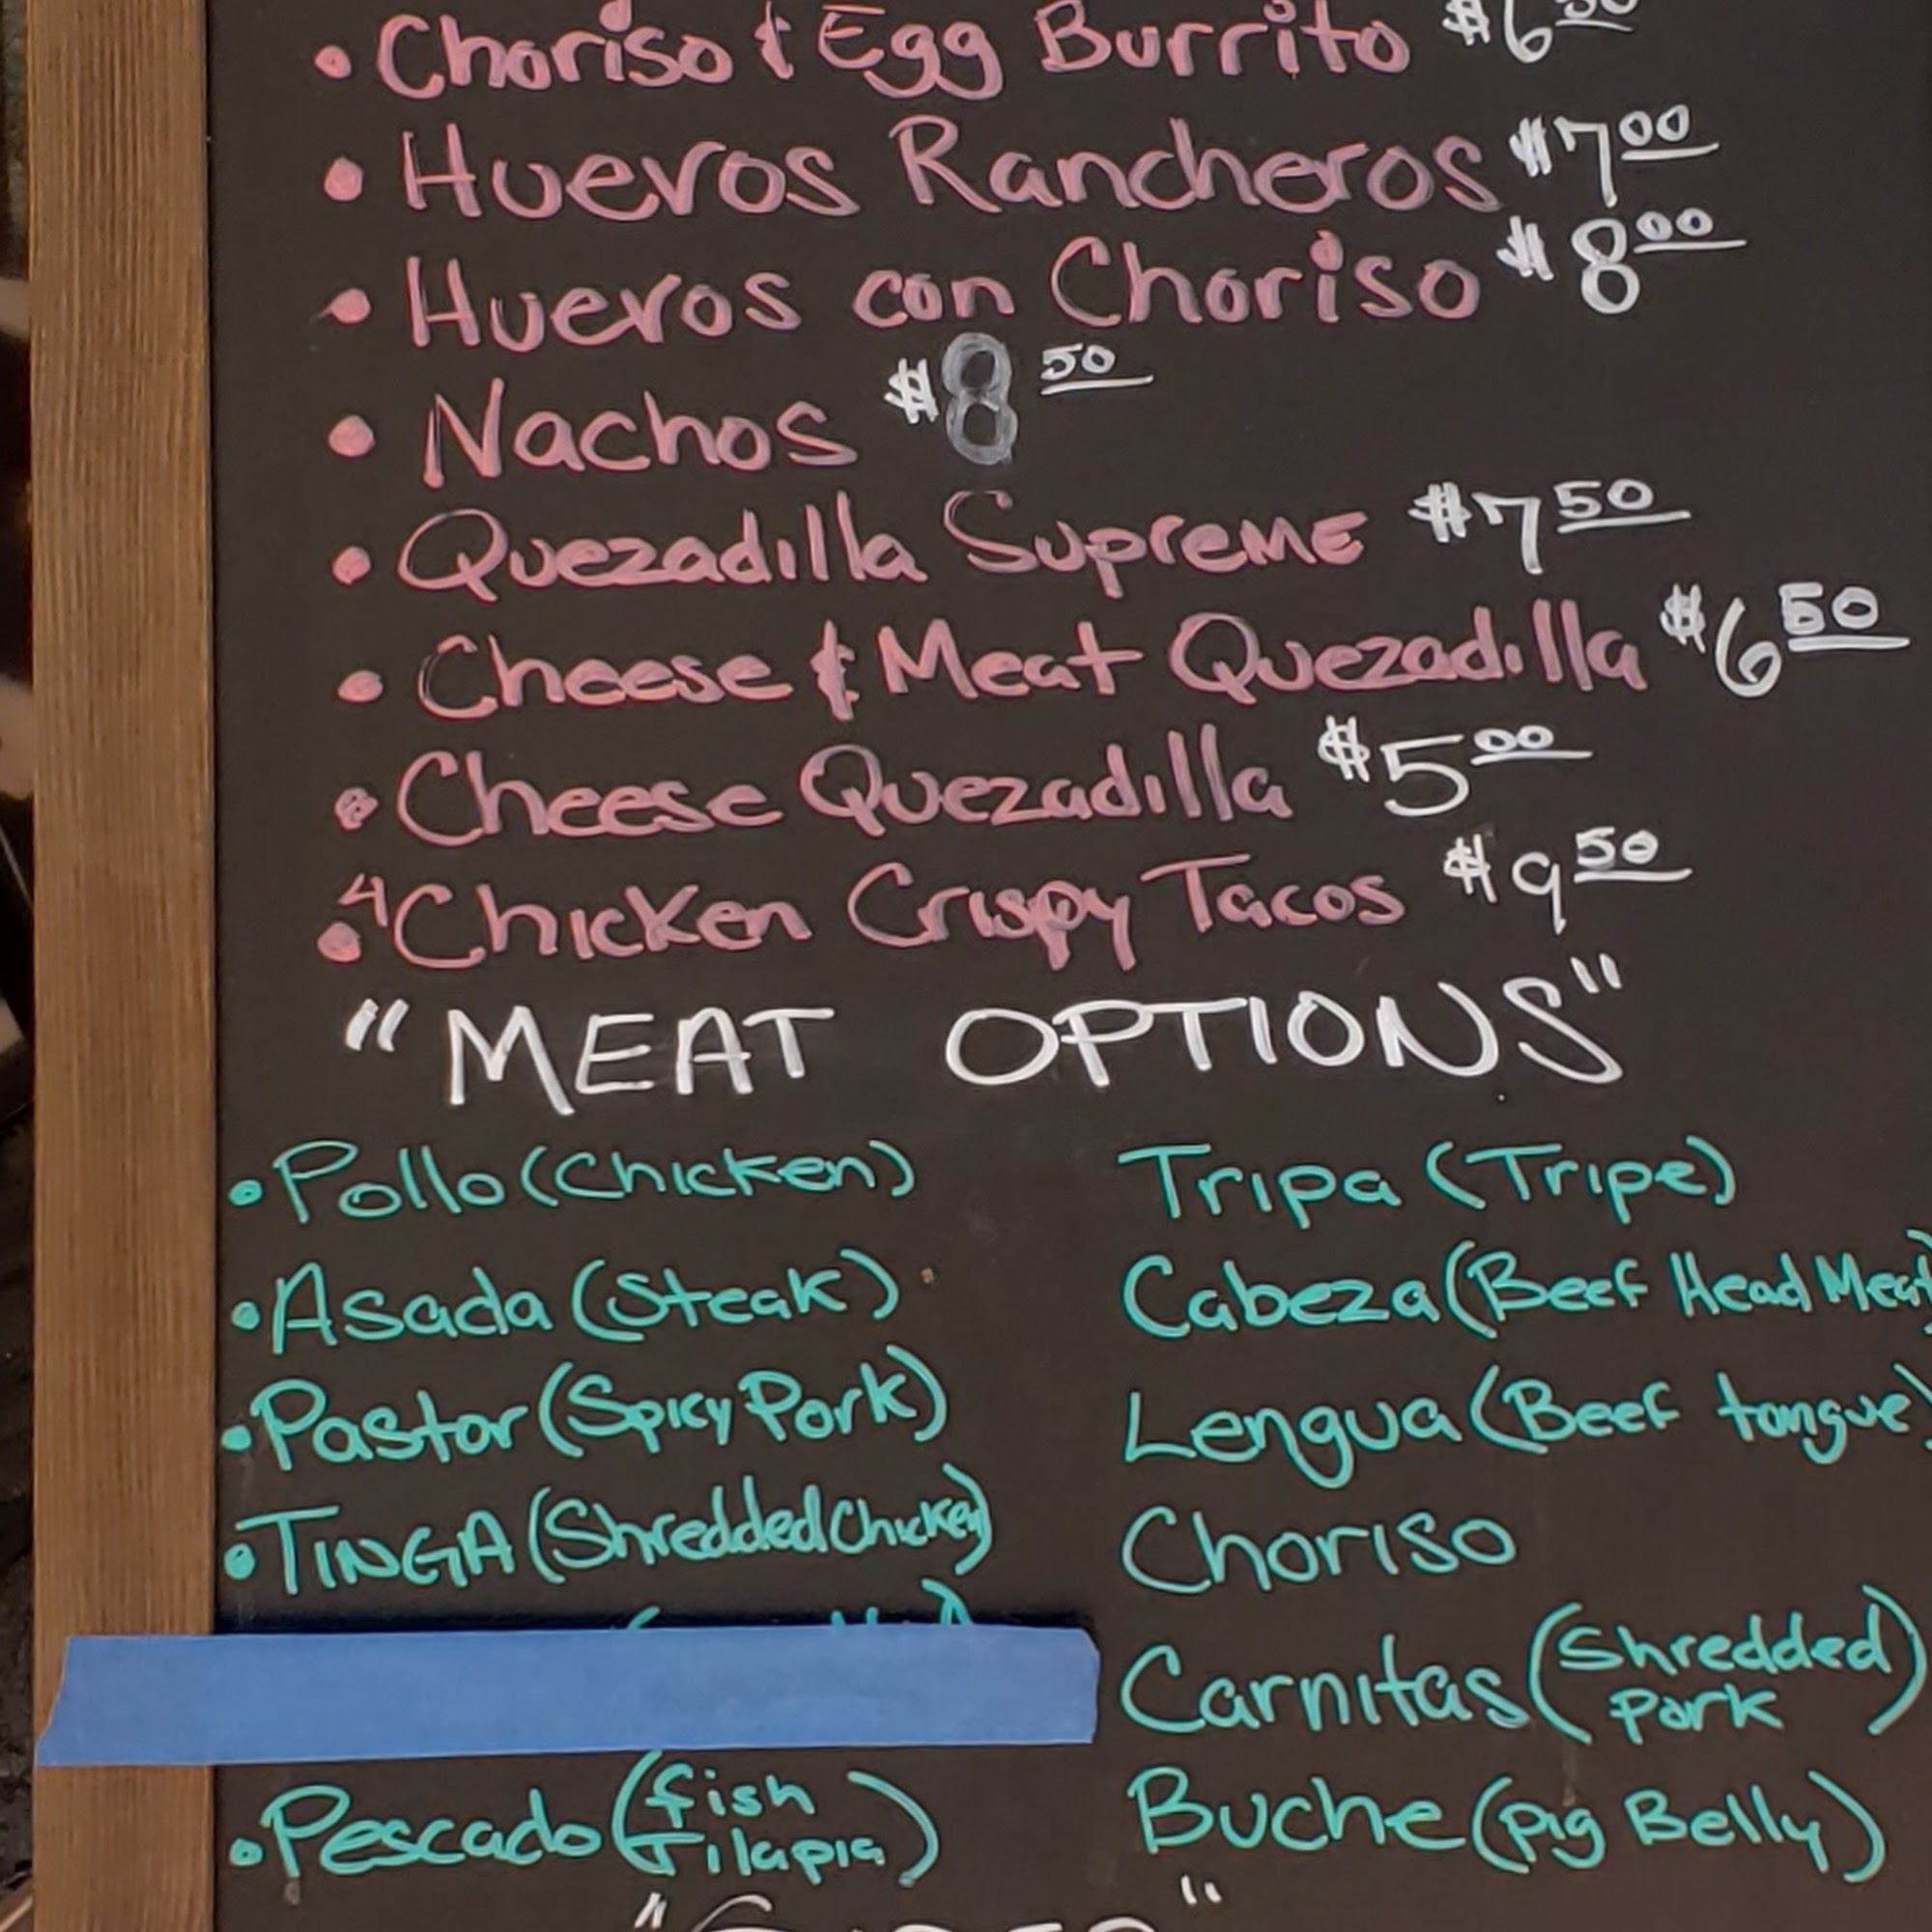 • Choriso & Egg Burrito $6 50
• Huevos Rancheros $7 00
• Huevos con Choriso $8 00
• Nachos $8 50
• Quezadilla Supreme $7 50
• Cheese & Meat Quezadilla $6 50
• Cheese Quezadilla $5 00
• 4 Chicken Crispy Tacos $9 50
"MEAT OPTIONS"
• Pollo (Chicken)
• Asada (Steak)
• Pastor (Spicy Pork)
• TINGA (Shredded Chicken)
• Pescado (fish Tilapia)
Tripa (Tripe)
Cabeza (Beef Head Meat)
Lengua (Beef tongue)
Choriso
Carnitas (Shredded Pork)
Buche (Pig Belly)